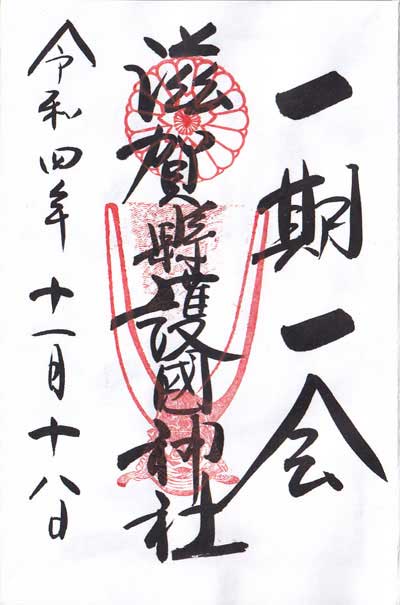 一期一会
滋賀縣護國神社
令和四年十一月十八日